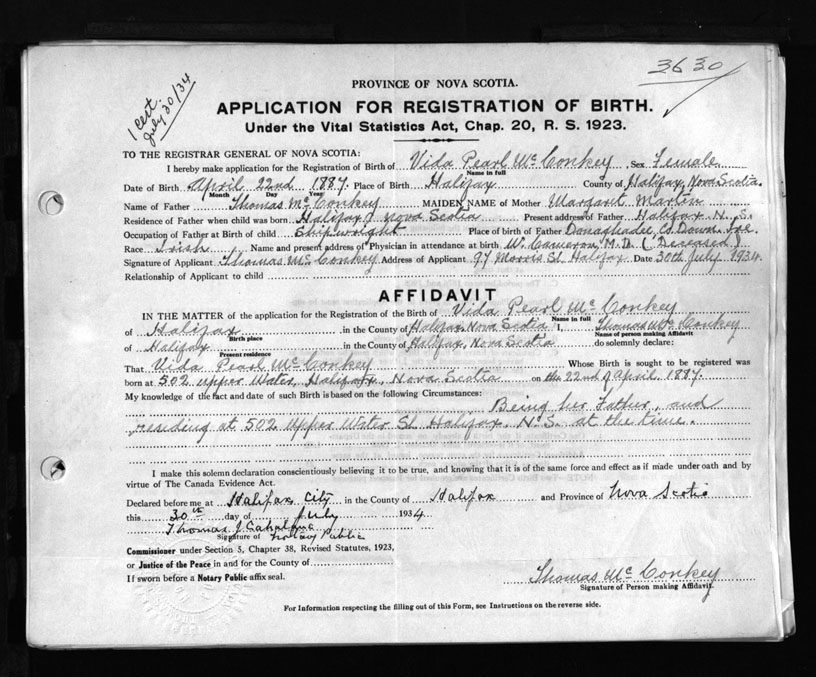 3630
1 cert.
July 30/34
PROVINCE OF NOVA SCOTIA.
APPLICATION FOR REGISTRATION OF BIRTH.
Under the Vital Statistics Act, Chap. 20, R. S. 1923.
TO THE REGISTRAR GENERAL OF NOVA SCOTIA:
I hereby make application for Registration of Birth of Vida Pearl McConkey, Sex Female
Name in full
Date of Birth April 22nd 1887. Place of Birth Halifax County of Halifax, Nova Scotia.
Month Day Year
Name of Father Thomas McConkey MAIDEN NAME of Mother Margaret
Residence of Father when child was born Halifax, Nova Scotia Present address of Father Halifax N. S.
Occupation of Father at Birth of child Shipwright Place of birth of Father Donaghadee, Co. Down, Ire.
Race Irish Name and present address of Physician in attendance at birth Cameron, M.D. (Deceased)
Signature of Applicant Thomas McConkey Address of Applicant 97 Morris St. Halifax Date 30th July 1934.
Relationship of Applicant to child
AFFIDAVIT
IN THE MATTER of the application for the Registration of the Birth of Vida Pearl McConkey
Name in full
of Halifax in the County of Halifax, Nova Scotia I, Thomas McConkey
Birth place Name of person making Affidavit
of Halifax in the County of Halifax, Nova Scotia do solemnly declare:
Present residence
That Vida Pearl McConkey Whose Birth is sought to be registered was
born at 502 Upper Water, Halifax, Nova Scotia on the 22nd of April 1887.
My knowledge of the fact and date of such Birth is based on the following Circumstances:
Being her Father, and
residing at 502 Upper Water St. Halifax, N.S. at the time.
I make this solemn declaration conscientiously believing it to be true, and knowing that it is of the same force and effect as if made under oath and by
virtue of The Canada Evidence Act.
Declared before me at Halifax City in the County of Halifax and Province of Nova Scotia
this 30th day of July 1934
Thomas J
Signature of Notary Public
Commissioner under Section 5, Chapter 38, Revised Statutes, 1923,
or Justice of the Peace in and for the County of
If sworn before a Notary Public affix seal.
Thomas McConkey
Signature of Person making Affidavit.
For Information respecting the filling out of this Form, see Instructions on the reverse side.